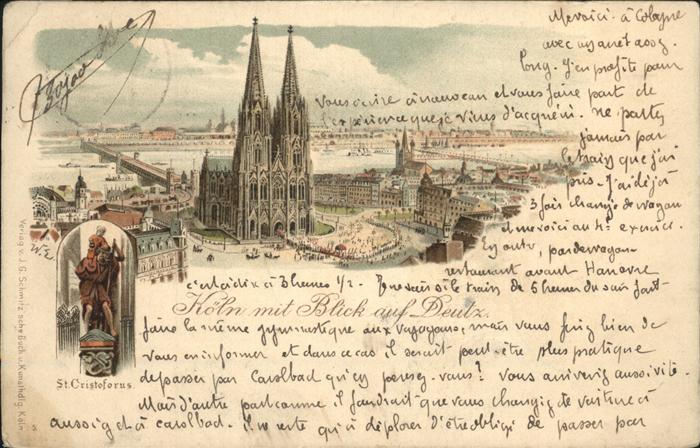 Me voici à Cologne
avec un arrêt assez
long. J'en profite pour
vous écrire à nouveau et vous faire part de
l'expérience que je viens d'acquérir. ne partez
jamais par
le train que j'ai
pris - J'ai déjà
3 fois changé de wagon
et me voici au 4e
En outre, pas de wagon-
restaurant avant Hanovre
c'est à dire à 3 heures 1/2 - si le train de 6 heures du soir fait
Köln mit Blick auf Deutz.
faire la même gymnastique aux voyageurs; mais vous ferez bien de
vous en informer et dans ce cas il serait peut-être plus pratique
de passer par Carlsbad qu'en pensez-vous? vous arriverez aussi vite.
Mais d'autre part comme il faudrait que vous changiez de voiture à
aussig et à carlsbad. Il me reste qu'à déplorer d'être obligé de passer par
St. Cristoforus.
Verlag v. J. G. Schmitz'sche Buch u. Kunsthdlg. Köln